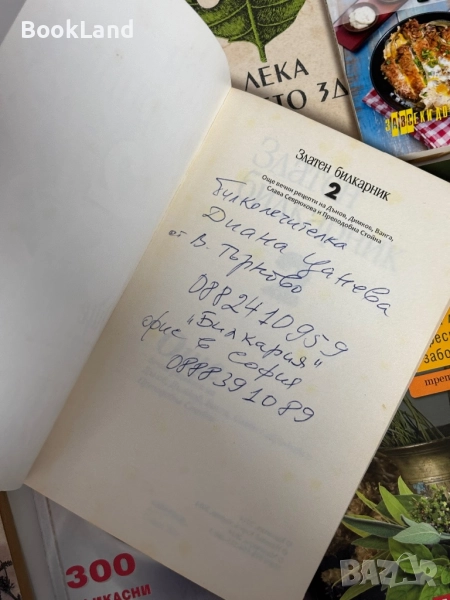 BookLand
ЛЕКА
ТО ЗД
ЗА ВСЕКИ ДО
Златен билкарник
2
Още вечни рецепти на Дънов, Димков, Ванга,
Слава Севрюкова и Преподобна Стойна
Билколечителка
Диана Цанева
от В. Търново
0882410959
"Билкария"
офис в София
0888391089
300
ИКАСНИ
рес
забо
BAZAR